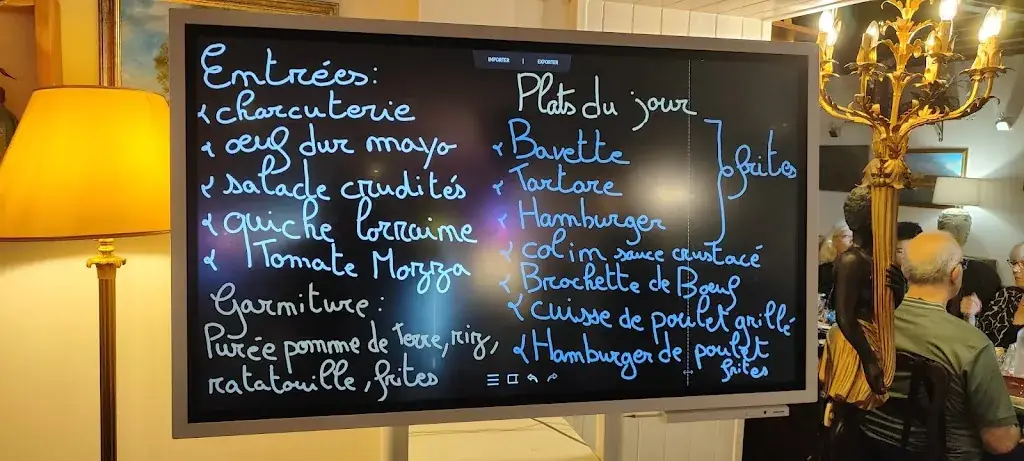 IMPORTER | EXPORTER
Entrées:
charcuterie
œuf dur mayo
salade crudités
quiche lorraine
Tomate Mozza
Garniture:
Purée pomme de Terre, riz,
ratatouille, frites
Plats du jour
Bavette
Tartare
Hamburger
frites
colin sauce crustacé
Brochette de Bœuf
cuisse de poulet grillé
Hamburger de poulet
frites